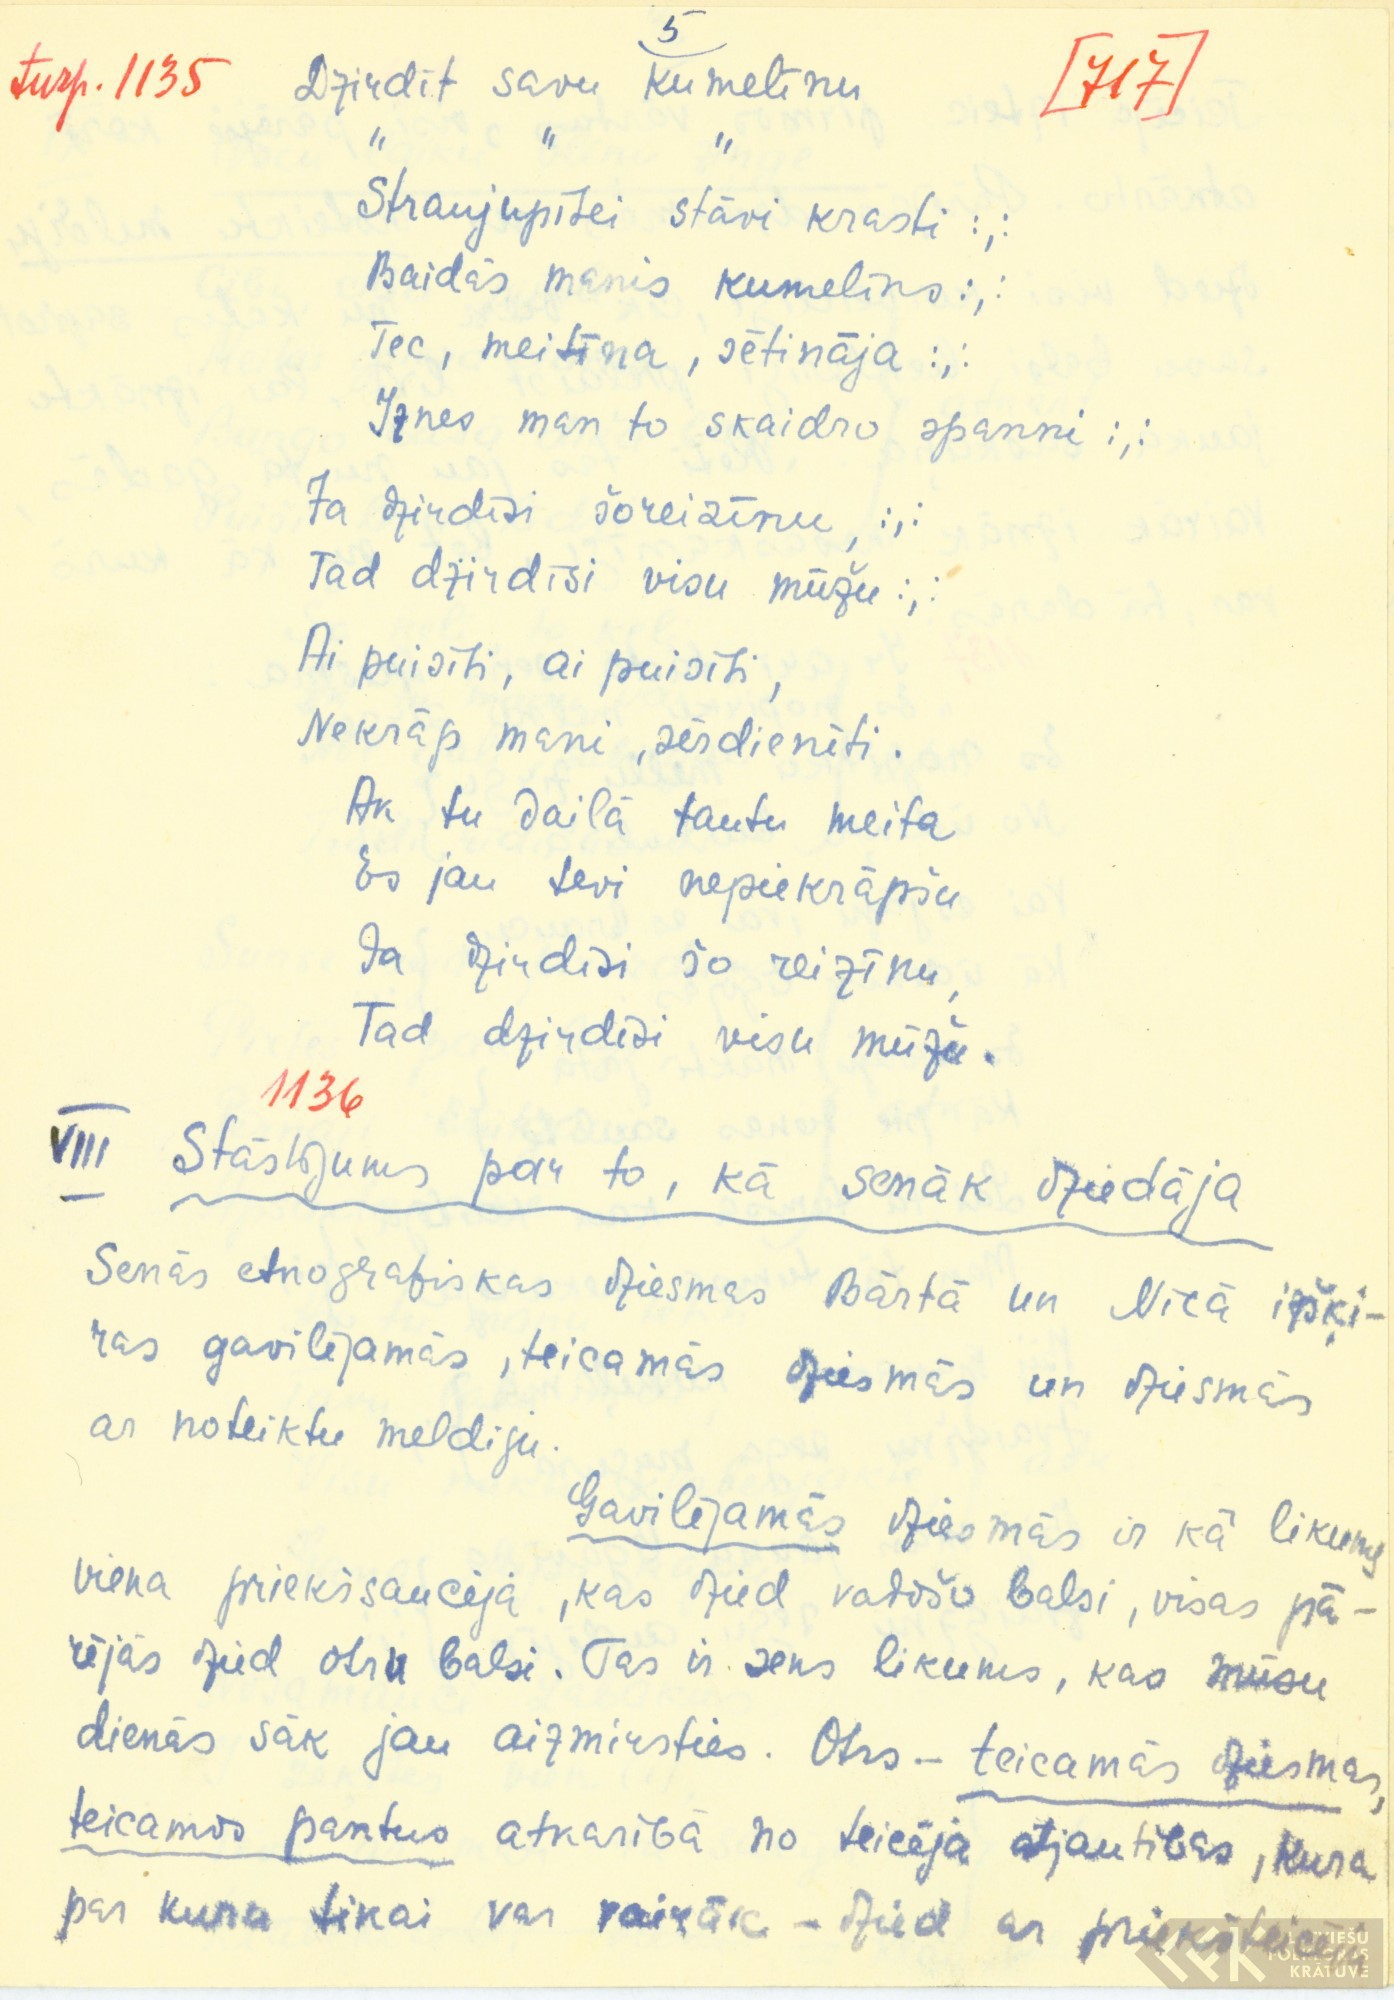 5
turp. 1135 Dzirdīt savu kumelīnu [717]
" " "
Straujupītei stāvi krasti :,:
Baidās manis kumelīns :,:
Tec, meitīna, sētināja :,:
Iznes man to skaidro spanni :,:
Ja dzirdīsi šoreizīnu, :,:
Tad dzirdīsi visu mūžu :,:
Ai puisīti, ai puisīti,
Nekrāp mani, sērdienīti.
Ak tu dailā tautu meita
Es jau tevi nepiekrāpšu
Ja dzirdīsi šo reizīnu,
Tad dzirdīsi visu mūžu.
1136
VIII Stāstījums par to, kā senāk dziedāja
Senās etnografiskas dziesmas Bārtā un Nīcā izšķi-
ras gavilējamās, teicamās dziesmās un dziesmās
ar noteiktu meldiju.
Gavilējamās dziesmās ir kā likums
viena priekšsaucēja, kas dzied vadošo balsi, visas pā-
rējās dzied otru balsi. Tas ir sens likums, kas mūsu
dienās sāk jau aizmirsties. Otrs - teicamās dziesmas,
teicamos pantus atkarībā no teicēja atjautības, kura
par kuru tikai var vairāk - dzied ar priekšteicēju
LATVIEŠU
FOLKLORAS
KRĀTUVE